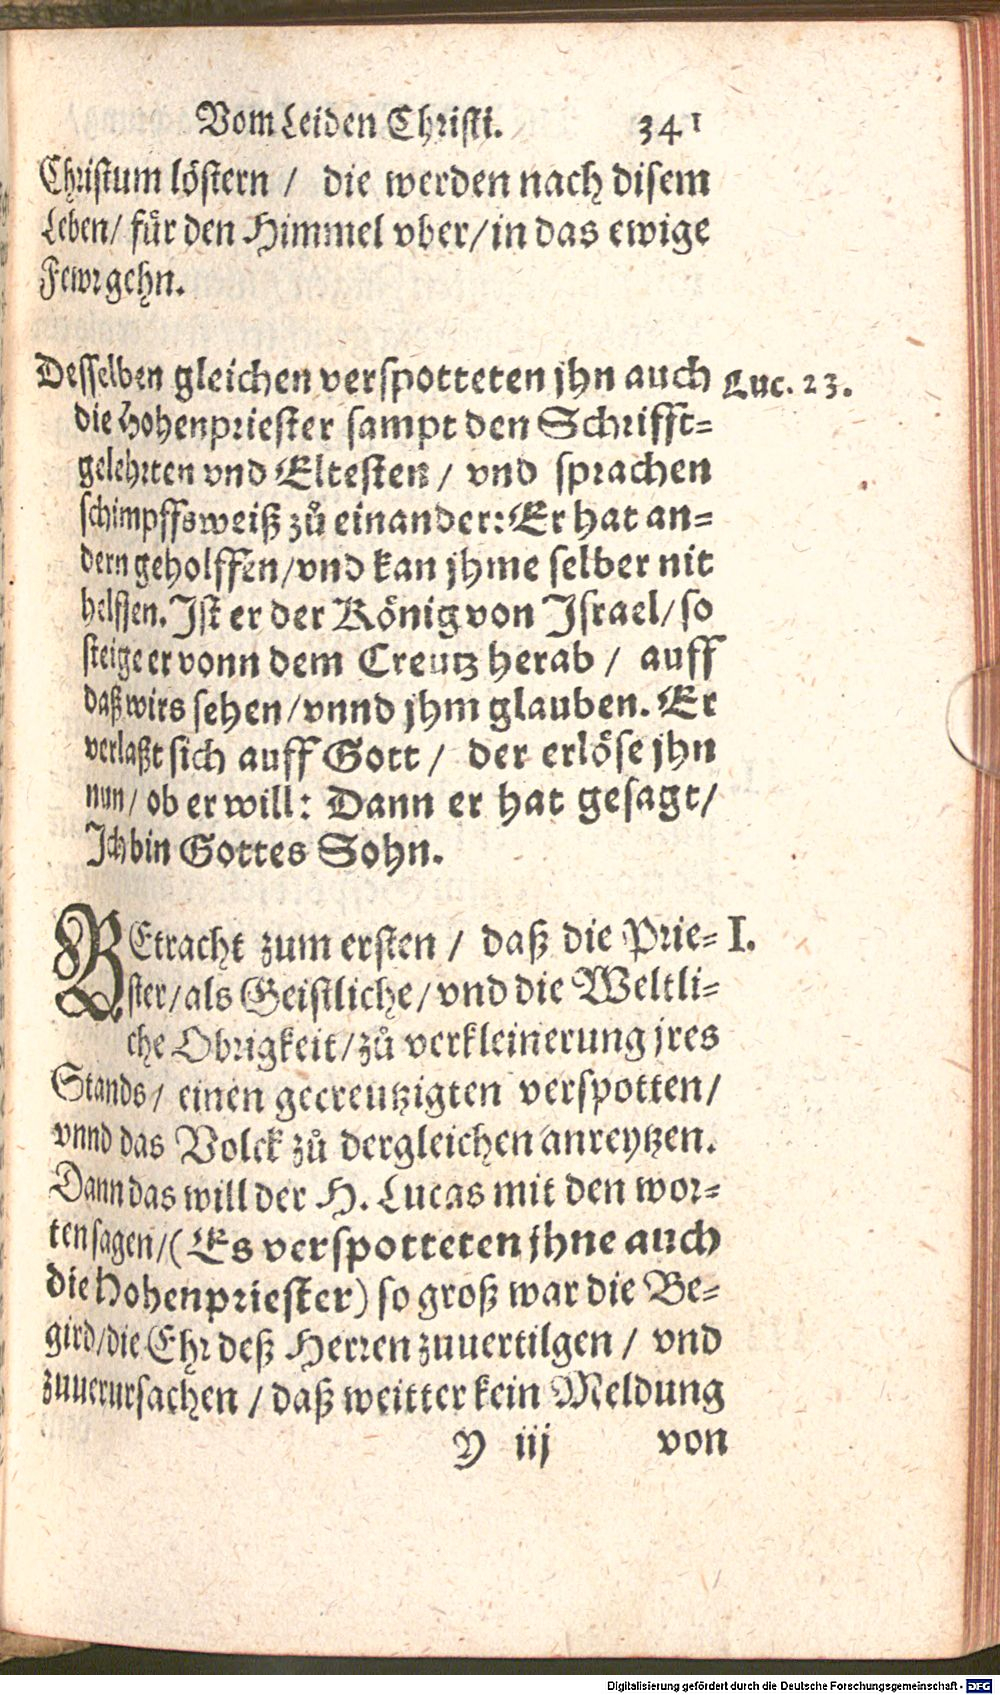 Vom Leiden Christi. 341
Christum löstern / die werden nach disem
Leben / für den Himmel vber / in das ewige
Fewr gehn.
Desselben gleichen verspotteten jhn auch Luc. 23.
die Hohenpriester sampt den Schrifft=
gelehrten vnd Eltesten / vnd sprachen
schimpffsweiß zů einander: Er hat an=
dern geholffen / vnd kan jhme selber nit
helffen. Ist er der König von Israel / so
steige er vonn dem Creutz herab / auff
daß wirs sehen / vnnd jhm glauben. Er
verlaßt sich auff Gott / der erlöse jhn
nun / ob er will: Dann er hat gesagt /
Ich bin Gottes Sohn.
BEtracht zum ersten / daß die Prie= I.
ster / als Geistliche / vnd die Weltli=
che Obrigkeit / zů verkleinerung jres
Stands / einen gecreutzigten verspotten /
vnnd das Volck zů dergleichen anreytzen.
Dann das will der H. Lucas mit den wor=
ten sagen / (Es verspotteten jhne auch
die Hohenpriester) so groß war die Be=
gird / die Ehr deß Herren zuuertilgen / vnd
zuuerursachen / daß weitter kein Meldung
Y iij von
Digitalisierung gefördert durch die Deutsche Forschungsgemeinschaft - DFG